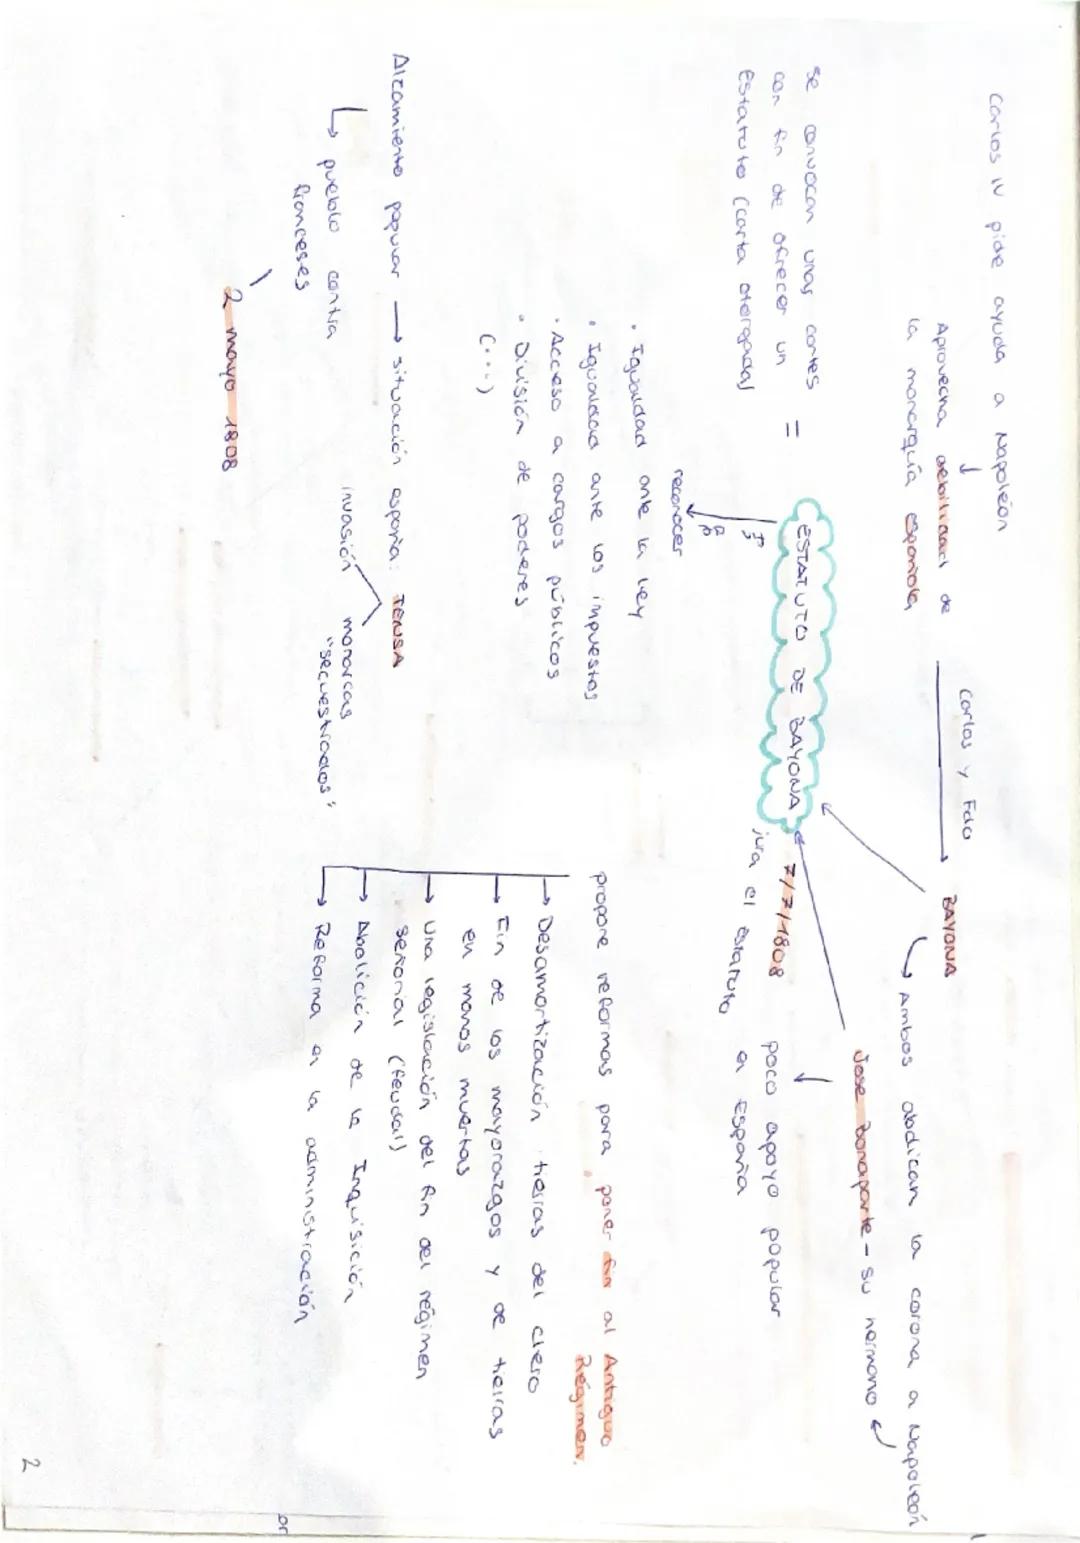 Carlos IV pide ayuda a Napoléon
Aprovecha debilidad de
la monarquía española
Carlos y Fdo
BAYONA
Ambos abdican la corona a Napoleón
Jose Bonaparte - su hermano
se convocan unas cortes
con fin de ofrecer un
Estatuto (carta otorgada)
=
ESTATUTO DE BAYONA
7/7/1808
jura el estatuto
poco apoyo popular
en España
reconocer
• Igualdad ante la ley
• Igualdad ante los impuestos
• Acceso a cargos públicos
• División de poderes
(...)
propone reformas para poner fin al Antiguo
Régimen.
Desamortización tierras del clero
Fin de los mayorazgos y de tierras
en manos muertas
Una legislación del fin del régimen
señorial (feudal)
Abolición de la Inquisición
Reforma en la administración
Alzamiento popular → situación españa: TENSA
pueblo contra
franceses
invasión
monarcas
"secuestrados"
2 mayo 1808
2
or